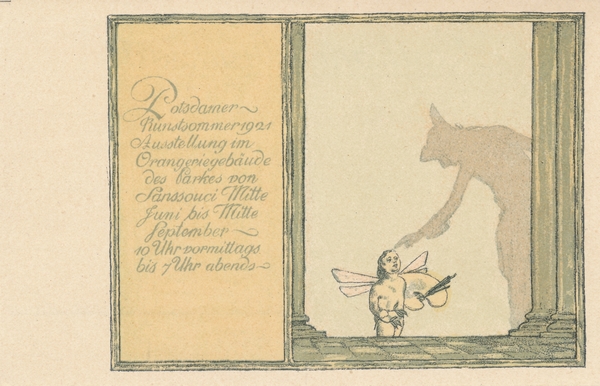 Potsdamer
Kunstsommer 1921
Ausstellung im
Orangeriegebäude
des Parkes von
Sanssouci Mitte
Juni bis Mitte
September
10 Uhr vormittags
bis 7 Uhr abends